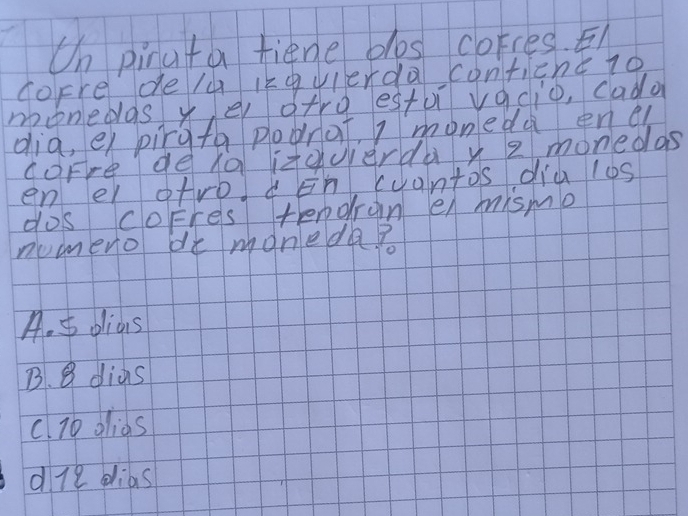 Un pirata tiene dos cofres. El
cofre de la izquierda contiene 10
monedas y el otro está vacio, cada
dia, el pirata podrá 1 moneda en el
cofre de la izquierda y 2 monedas
en el otro. ¿En cuantos dia los
dos cofres tendran el mismo
numero de moneda?
A. 5 dias
B. 8 dias
C. 10 dias
d 12 dias